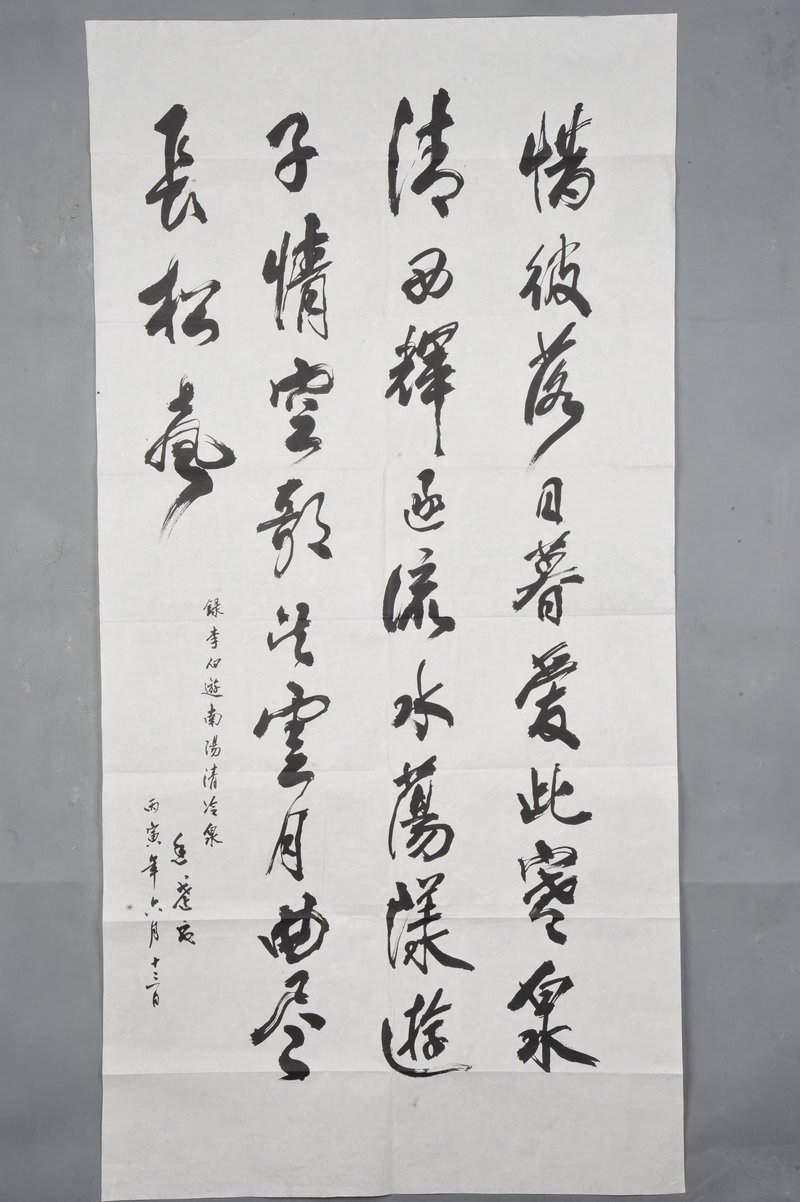 惜彼落日暮愛此寒泉
清西輝逐流水蕩漾遊
子情空歌望雲月曲尽
長松聲
録李白遊南陽清冷泉
丙寅年六月十三日